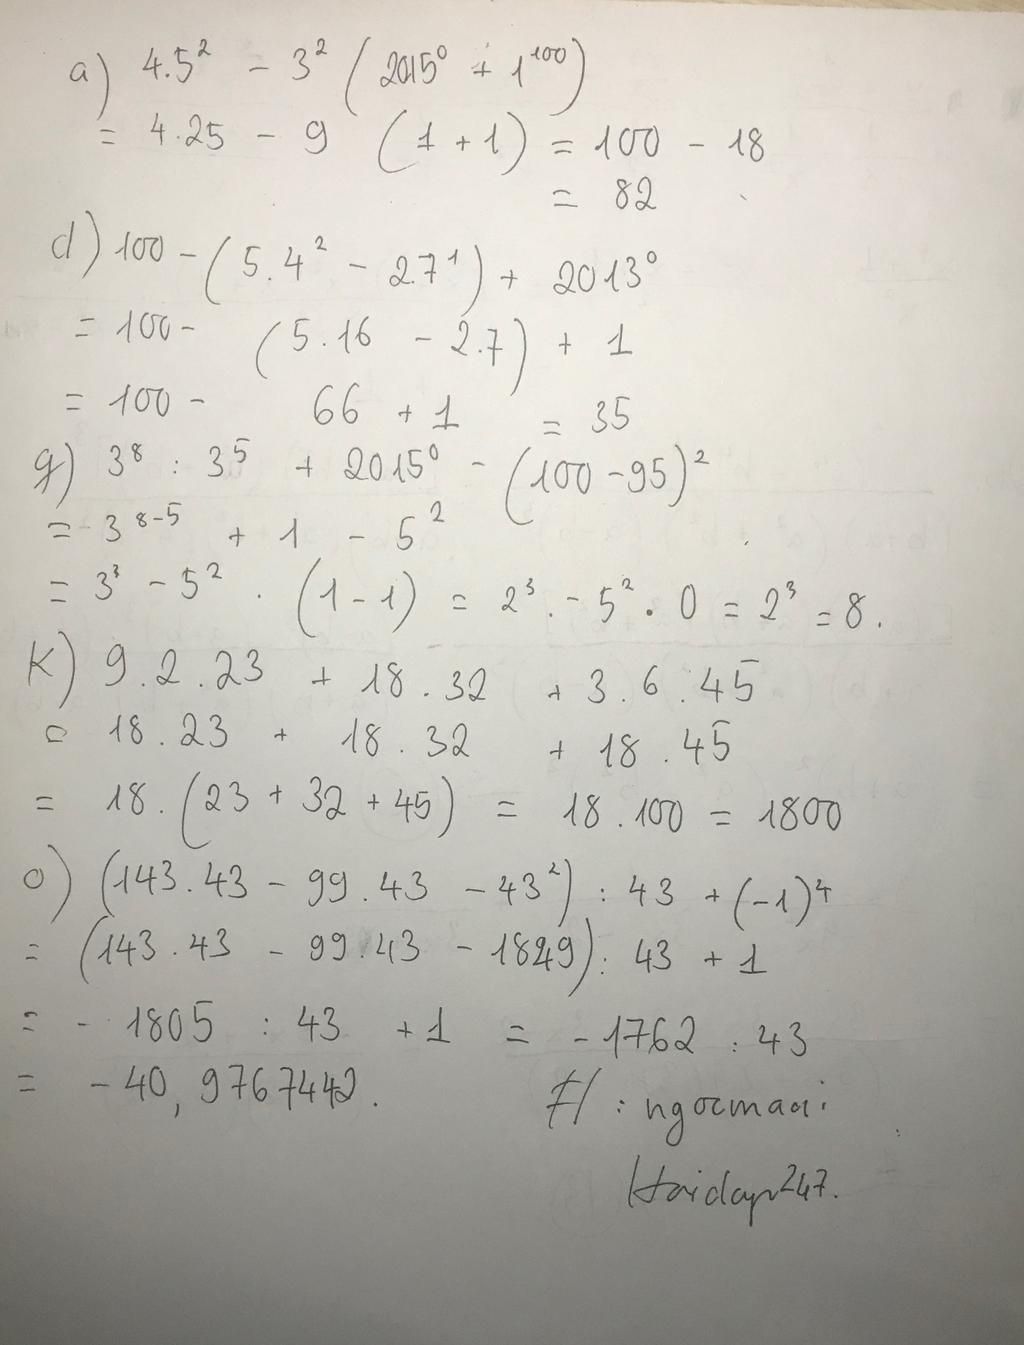 a) 4.5² - 3² (2015⁰ + 1¹⁰⁰)
= 4.25 - 9 (1 + 1) = 100 - 18
= 82
d) 100 - (5.4² - 2.7¹) + 2013⁰
= 100 - (5.16 - 2.7) + 1
= 100 - 66 + 1 = 35
g) 3⁸ : 3⁵ + 2015⁰ - (100 - 95)²
= 3⁸⁻⁵ + 1 - 5²
= 3³ - 5² . (1 - 1) = 2³ . - 5² . 0 = 2³ = 8.
K) 9.2.23 + 18.32 + 3.6.45
= 18.23 + 18.32 + 18.45
= 18.(23 + 32 + 45) = 18.100 = 1800
o) (143.43 - 99.43 - 43²) : 43 + (-1)⁴
= (143.43 - 99.43 - 1849) : 43 + 1
= - 1805 : 43 + 1 = - 1762 : 43
= - 40,9767442.
: ngocmaai
Hoidap247.